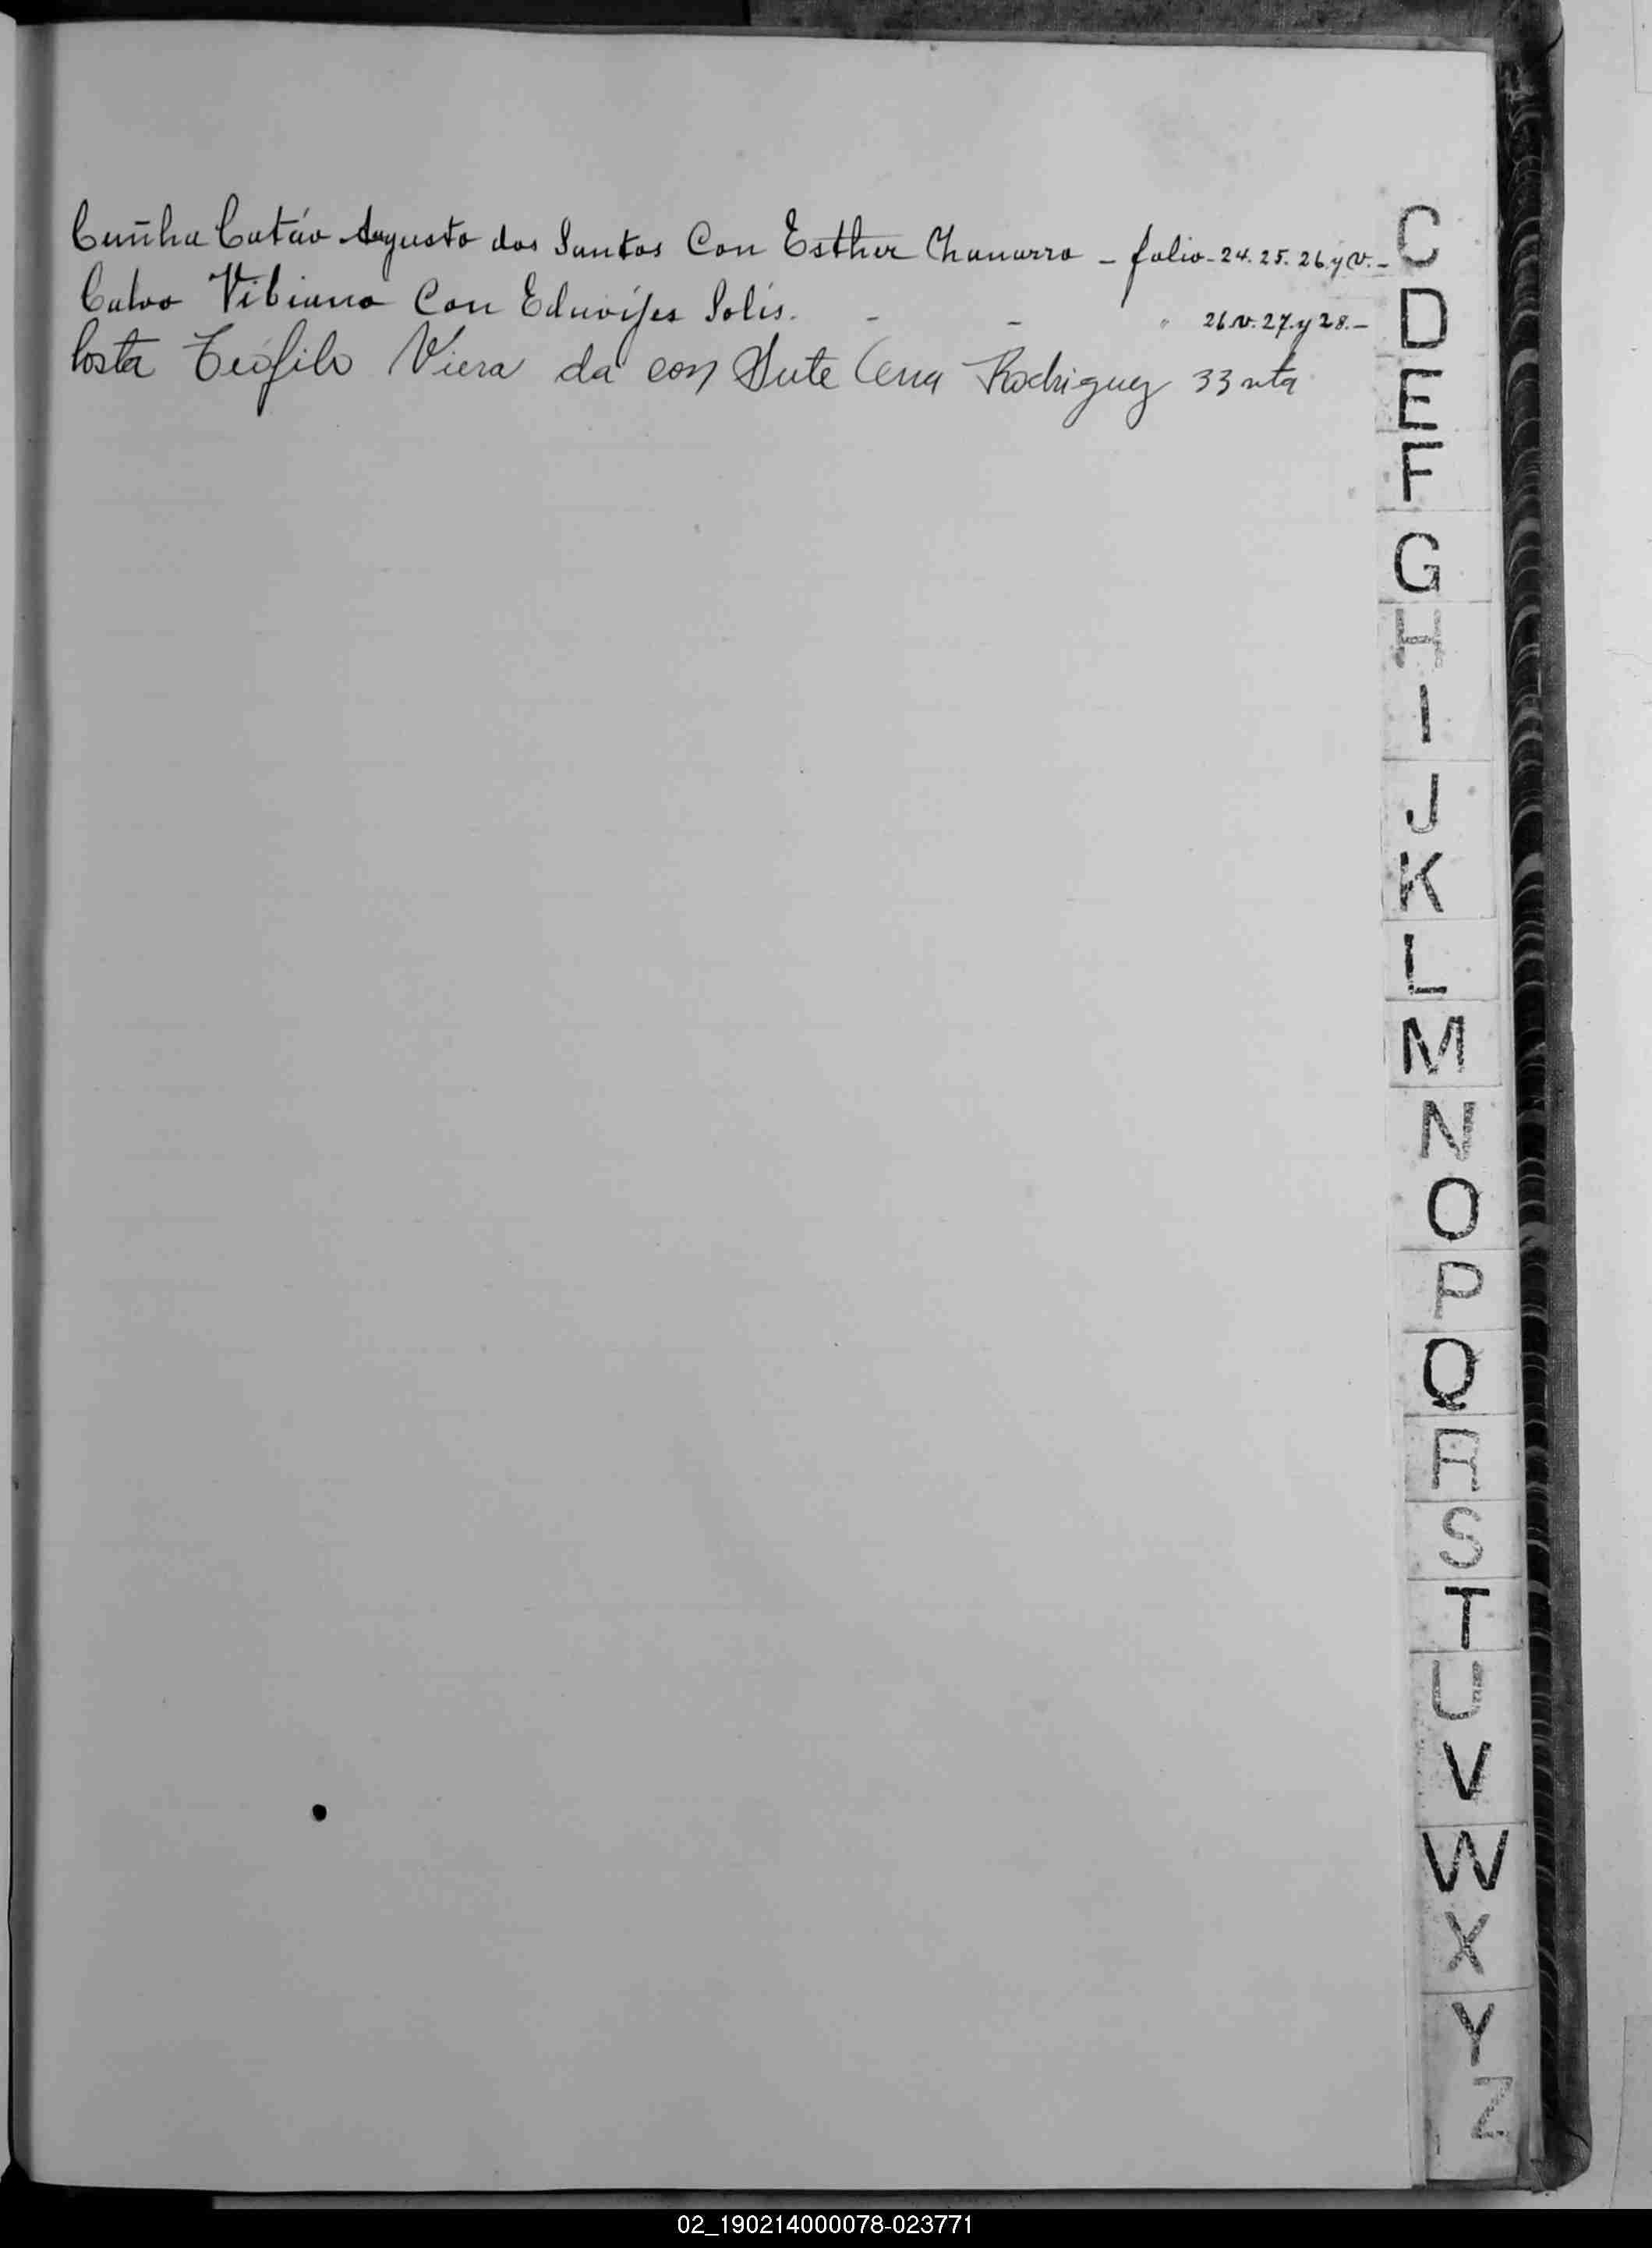 Cuñha Catáo Augusto dos Santos Con Esther Chanarro - folio - 24. 25. 26 y v. -
Calvo Vibiano Con Eduvijes Solis. - - " 26 v. 27. y 28. -
Costa Teófilo Viera da con Rodriguez 33 vta
C
D
E
F
G
H
I
J
K
L
M
N
O
P
Q
R
S
T
U
V
W
X
Y
Z
02_190214000078-023771